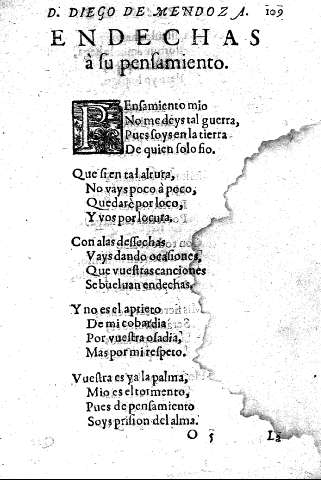 D. DIEGO DE MENDOZA. 109
ENDECHAS
à su pensamiento.
PEnsamiento mio
No me deys tal guerra,
Pues soys en la tierra
De quien solo fio.
Que si en tal altura,
No vays poco à poco,
Quedarè por loco,
Y vos por locura.
Con alas dessechas
Vays dando ocasiones,
Que vuestras canciones
Se bueluan endechas,
Y no es el aprieto
De mi cobardia
Por vuestra osadia,
Mas por mi respeto.
Vuestra es ya la palma,
Mio es el tormento,
Pues de pensamiento
Soys prision del alma.
O 5 La